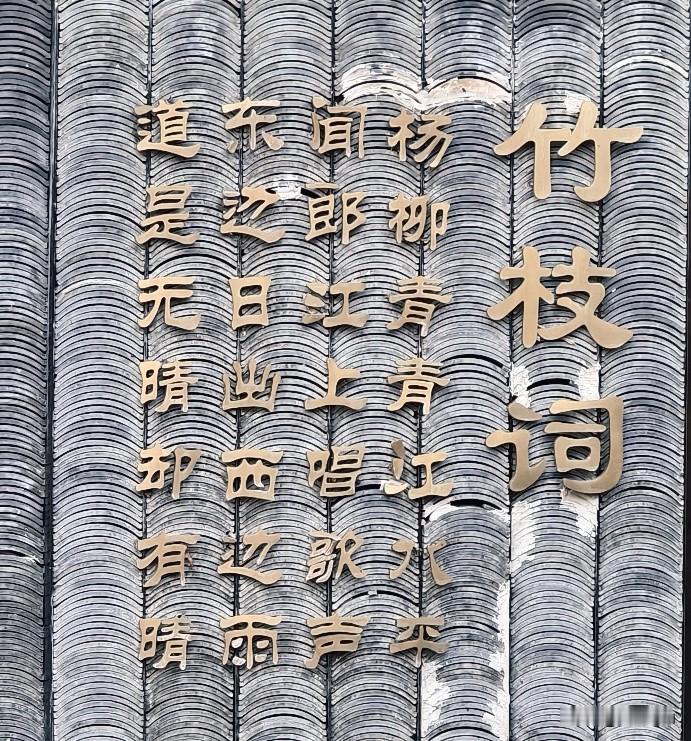 竹枝词
杨柳青青江水平
闻郎江上唱歌声
东边日出西边雨
道是无晴却有晴